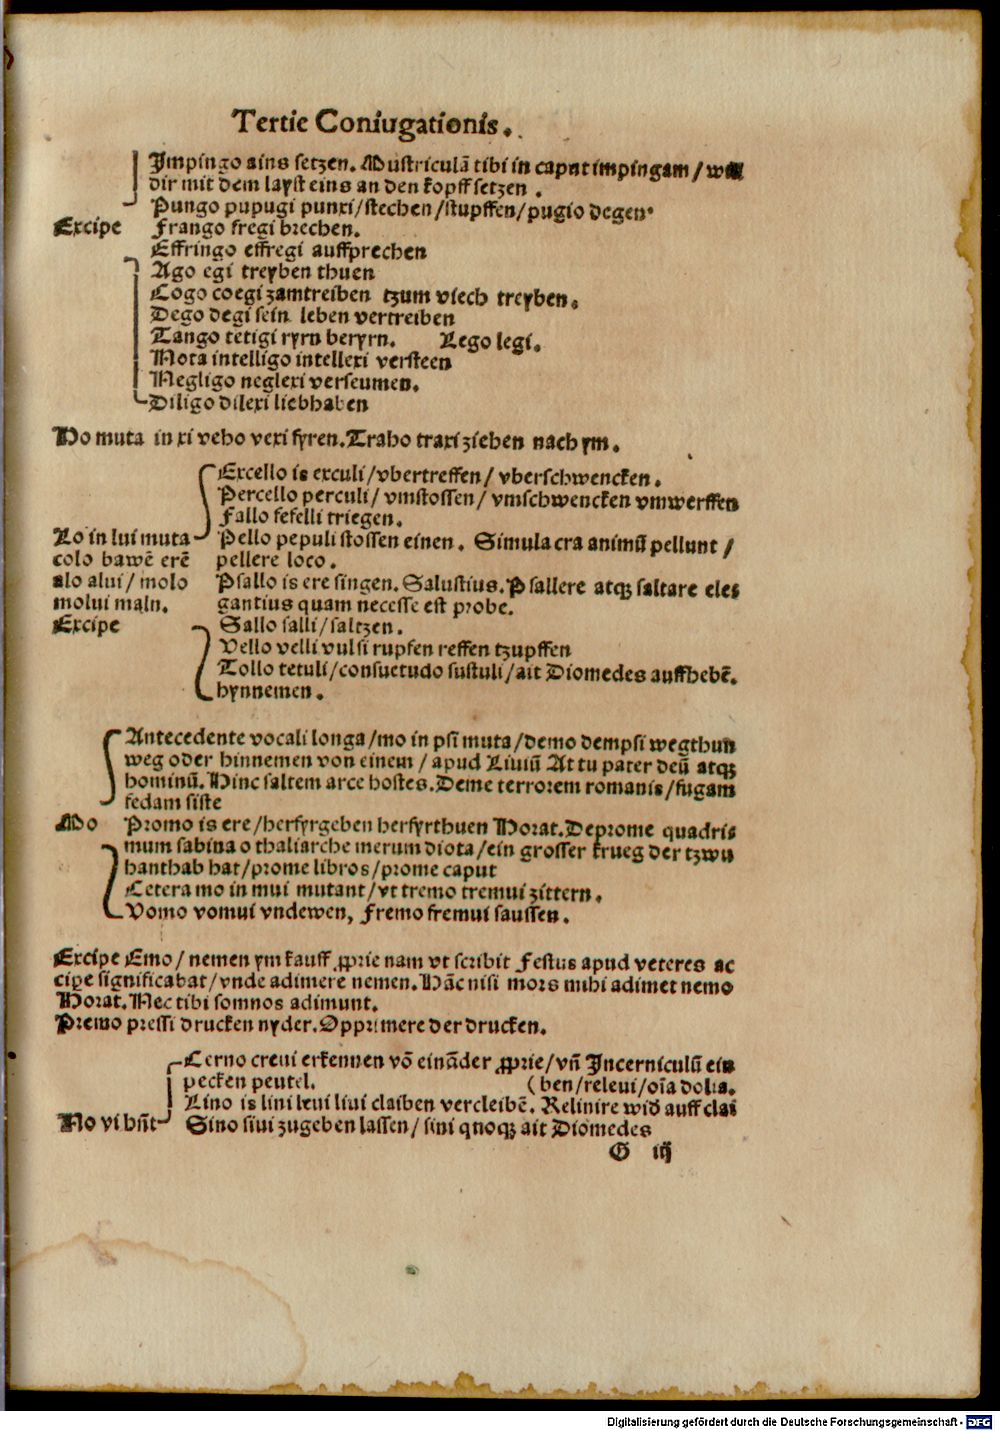 Tertie Coniugationis.
Impingo ains setzen. Mustriculā tibi in caput impingam / will
dir mit dem layst eins an den kopff setzen .
Pungo pupugi punxi / stechen / stupffen / pugio degen.
Excipe Frango fregi brechen.
Effringo effregi auffprechen
Ago egi treyben thuen
Cogo coegi zamtreiben tzum viech treyben.
Dego degi sein leben vertreiben
Tango tetigi ryrn beryrn. Lego legi.
Nota intelligo intellexi versteen
Negligo neglexi verseumen.
Diligo dilexi liebhaben
Ho muta in xi veho vexi fyren. Traho traxi ziehen nach ym.
Excello is exculi / vbertreffen / vberschwencken.
Percello perculi / vmstossen / vmschwencken vmwerffen
Fallo fefelli triegen.
Lo in lui muta Pello pepuli stossen einen. Simulacra animū pellunt /
colo bawē erē pellere loco.
alo alui / molo Psallo is ere singen. Salustius. Psallere atqꝫ saltare ele⸗
molui maln. gantius quam necesse est probe.
Excipe Sallo salli / saltzen.
Vello velli vulsi rupfen reffen tzupffen
Tollo tetuli / consuetudo sustuli / ait Diomedes auffhebē.
hynnemen.
Antecedente vocali longa / mo in psi muta / demo dempsi wegthun
weg oder hinnemen von einem / apud Liuiū At tu pater deū atqꝫ
hominū. Hinc saltem arce hostes. Deme terrorem romanis / fugam
fedam siste
Mo Promo is ere / herfyrgeben herfyrthuen Horat. Deprome quadri⸗
mum sabina o thaliarche merum diota / ein grosser krueg der tzwu
hanthab hat / prome libros / prome caput
Cetera mo in mui mutant / vt tremo tremui zittern.
Vomo vomui vndewen, Fremo fremui saussen.
Excipe Emo / nemen ym kauff ꝓprie nam vt scribit Festus apud veteres ac
cipe significabat / vnde adimere nemen. Hāc nisi mors mihi adimet nemo
Horat. Nec tibi somnos adimunt.
Premo pressi drucken nyder. Opprimere der drucken.
Cerno creui erkennen vō eināder ꝓprie / vñ Incerniculū ein
pecken peutel. ( ben / releui / oīa dolia.
Lino is lini leui liui claiben vercleibē. Relinire wid auff clai
No vi bn̄t Sino siui zugeben lassen / sini quoqꝫ ait Diomedes
G iij
Digitalisierung gefördert durch die Deutsche Forschungsgemeinschaft - DFG